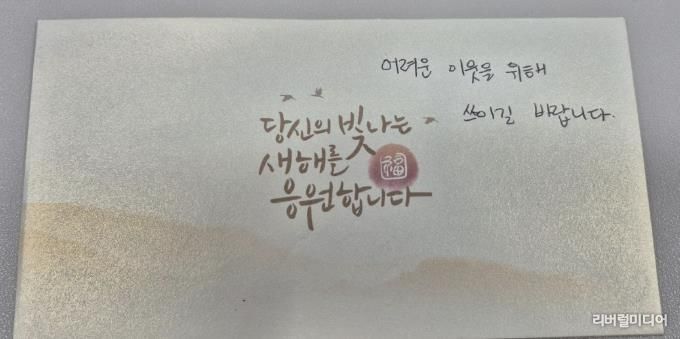 어려운 이웃을 위해
쓰이길 바랍니다.
당신의 빛나는
새해를
福
응원합니다
리버럴미디어